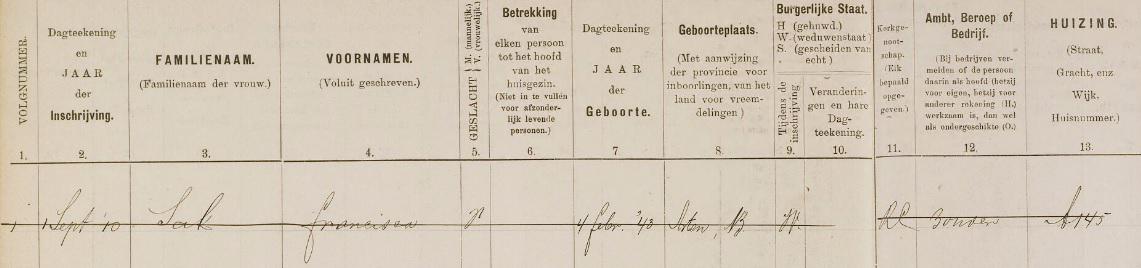 VOLGNUMMER.
1.
Dagteekening
en
JAAR
der
Inschrijving.
2.
FAMILIENAAM.
(Familienaam der vrouw.)
3.
VOORNAMEN.
(Voluit geschreven.)
4.
GESLACHT { M. (mannelijk.) V. (vrouwelijk.)
5.
Betrekking
van
elken persoon
tot het hoofd
van het
huisgezin.
(Niet in te vullen
voor afzonder-
lijk levende
personen.)
6.
Dagteekening
en
JAAR
der
Geboorte.
7
Geboorteplaats.
(Met aanwijzing
der provincie voor
inboorlingen, van het
land voor vreem-
delingen)
8.
Burgerlijke Staat.
H (gehuwd.)
W (weduwenstaat)
S. (gescheiden van
echt)
Tijdens de
inschrijving
9.
Veranderin-
gen en hare
Dag-
teekening.
10.
Kerkge-
noot-
schap.
(Elk
bepaald
opge-
geven.)
11.
Ambt, Beroep of
Bedrijf.
(Bij bedrijven ver-
melden of de persoon
daarin als hoofd (hetzij
voor eigen, hetzij voor
anderer rekening (H.)
werkzaam is, dan wel
als ondergeschikte (O.)
12.
HUIZING.
(Straat,
Gracht, enz
Wijk.
Huisnummer.)
13.
1 1 Sept '10 Sak Francisca 4 Febr. '43 Asten, NB W. RC Zonder A 145